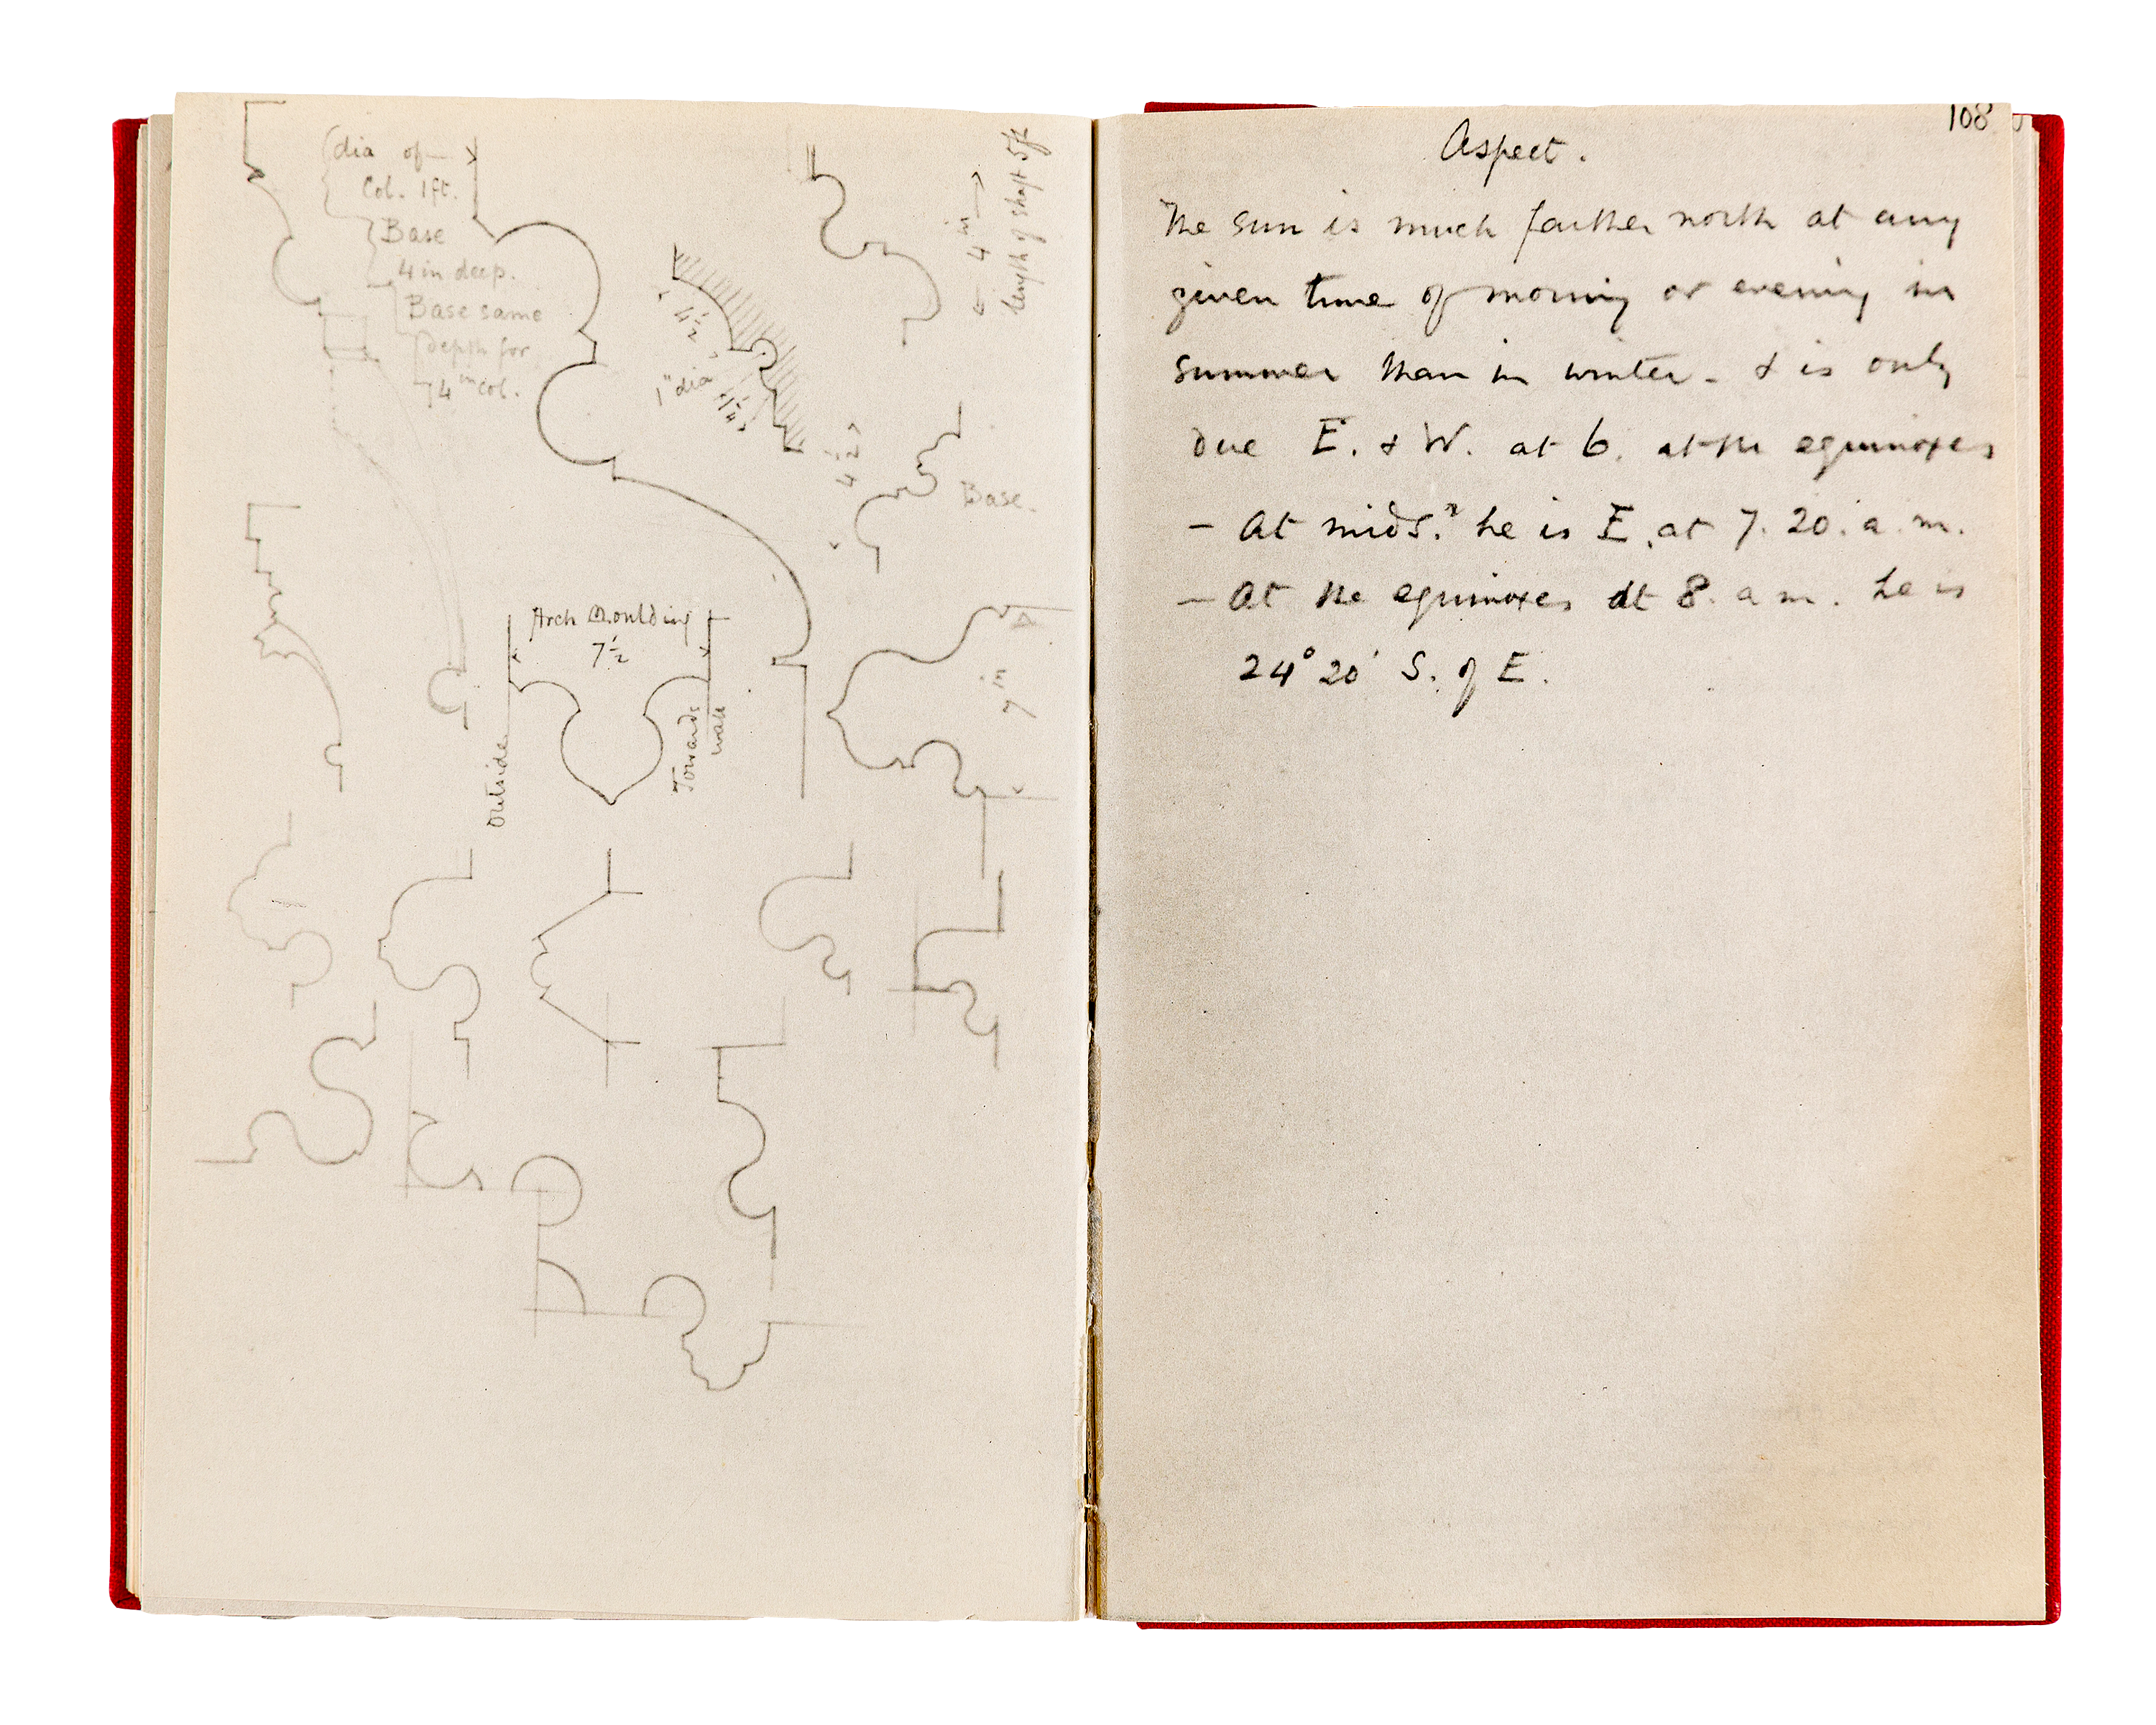 dia of
Col. 1ft.
Base
4 in deep.
Base same
depth for
4 in col.
4 in
length of shaft 5ft
4½
1" dia
1¼
4½
Base.
Arch Moulding
7½
Outside
Towards
wall
7 in
108
Aspect.
The sun is much farther north at any
given time of morning or evening in
summer than in winter - & is only
due E. & W. at 6. at the equinoxes
- At mids.r he is E. at 7. 20. a. m.
- At the equinoxes at 8. a m. he is
24° 20' S. of E.